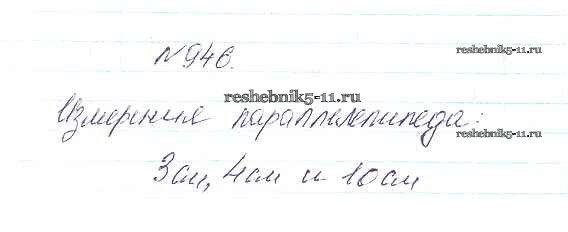 №946.
reshebnik5-11.ru
reshebnik5-11.ru
Измерения параллелепипеда:
3см, 4см и 10см
reshebnik5-11.ru